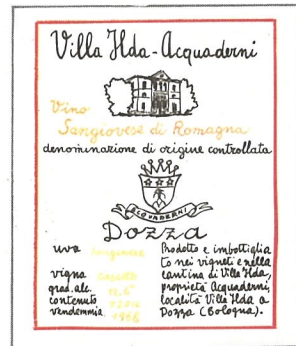 Villa Ilda-Acquaderni
Vino
Sangiovese di Romagna
denominazione di origine controllata
ACQUADERNI
Dozza
uva Sangiovese
vigna
grad. alc.
contenuto
vendemmia 1966
Prodotto e imbottiglia
to nei vigneti e nella
cantina di Villa Ilda,
proprietà Acquaderni,
località Villa Ilda a
Dozza (Bologna).